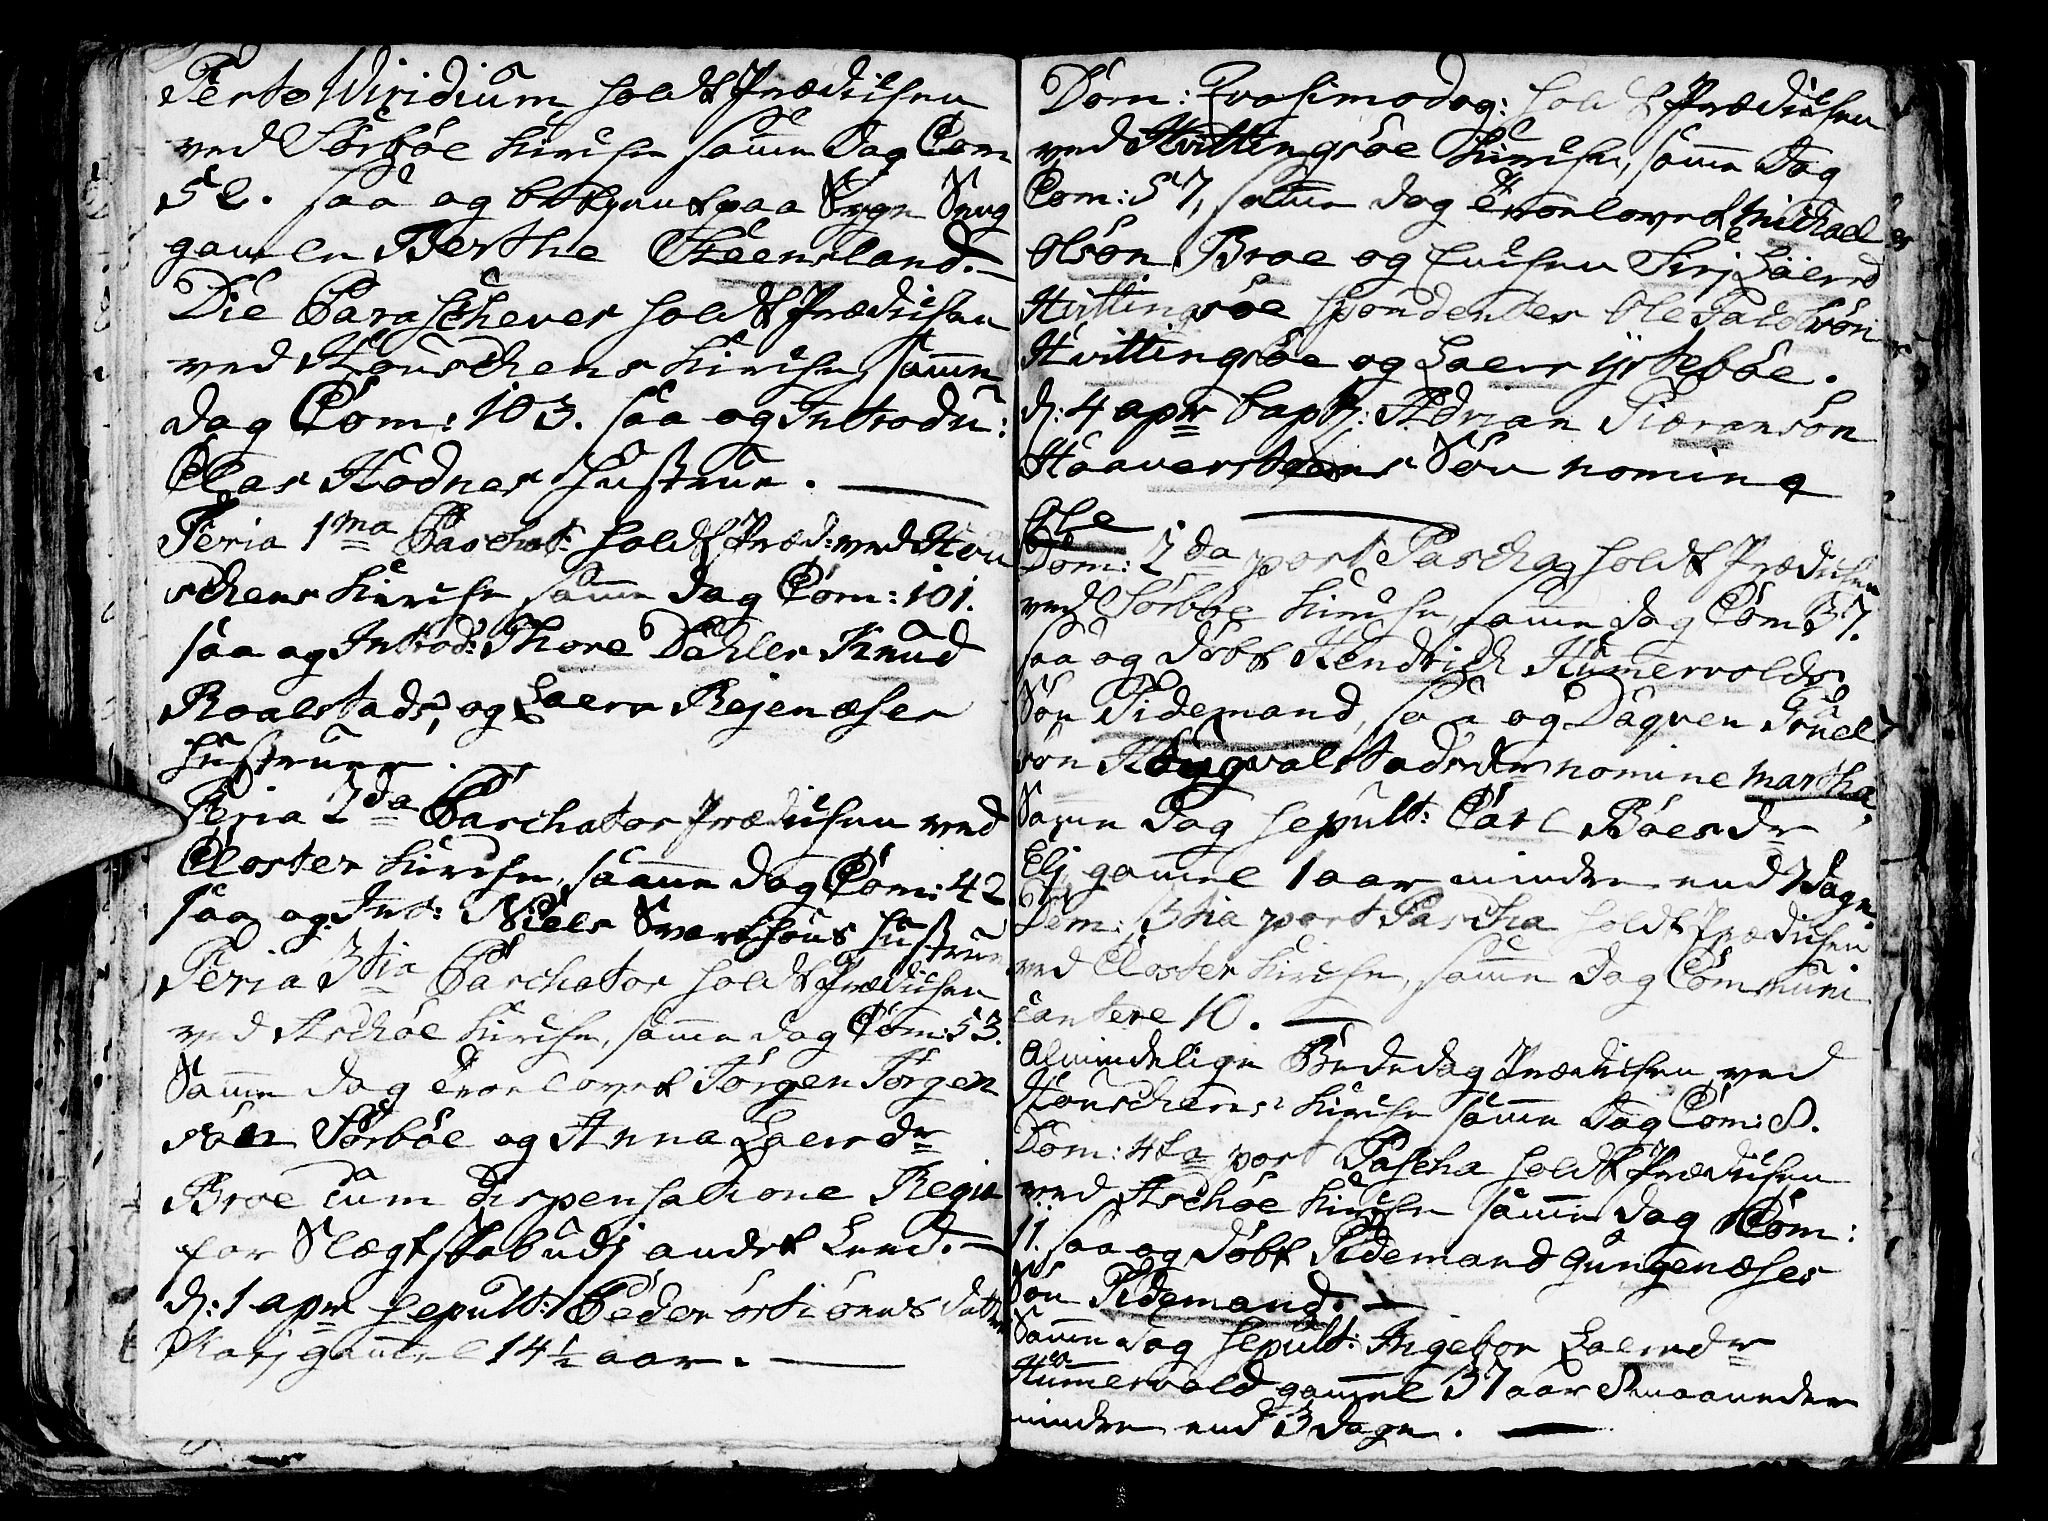 Festo Viridium holdt Prædichen
ved Sørbøe Kirche samme dag Com
52. saa og betient paa Syge Seng
gamle Berthe Steensland.
Die Parascheves holdt Prædichen
ved Houschens Kirche, samme
dag Com: 103. saa og Introdu:
Clas Hodnes Hustrue.
Feria 1ma Paschat: holdt Præd: ved Hou
schens Kirche samme dag Com: 101.
saa og Introd: Thore Dahles Knud
Roalstads, og Laers Rejenæses
Hustruer.
Feria 2da Paschatos Prædichen ved
Closter Kirche, samme dag Com: 42
saa og Int: Niels Hustrue
Feria 3tia Paschatos holdt Prædichen
ved Aschøe Kirche, samme dag Com: 53.
Samme dag Troelovet Jørgen Jørgen
søn Sørbøe og Anna Laersdr
Broe cum dispensatione Regia
for Slægtskab udj andet Leed.
d: 1 apr sepult: Peder datter
Karj gammel 14 1/2 aar.
Dom: Qvasimodog: holdt Prædichen
ved Hvittingsøe Kirche, samme dag
Com: 57, samme dag Troelovet Michael
Olsøn Broe og Enchen Sirj Laersd
Hvittingsøe sponderter Ole Jacobsøn
Hvittingsøe og Laers ystebøe.
d: 4 apr bapt: Adrian
Haaversteens Søn nomine
Ole
Dom: 2da post Pascha holdt Prædichen
ved Sørbøe Kirche, samme dag Com 37.
saa og døbt Hendrich Humervolds
Søn Tidemand, saa og
søn dr nomine Martha,
Samme dag sepult: Carl Bøes dr
Elj gammel 1 aar mindre end 7 dage
Dom: 3tia post Pascha holdt Prædichen
ved Closter Kirche, samme dag Communi
cantere 10.
Almindelige Bededag Prædichen ved
Houschens Kirche samme dag Com: 8.
Dom: 4ta post Pascha holdt Prædichen
ved Aschøe Kirche samme dag Com:
11. saa og døbt Tidemand Gungenæses
Søn Tidemand.
Samme dag sepult: Ingebor Laersdr
Humervold gammel 37 aar 8 maaneder
mindre end 3 dage.